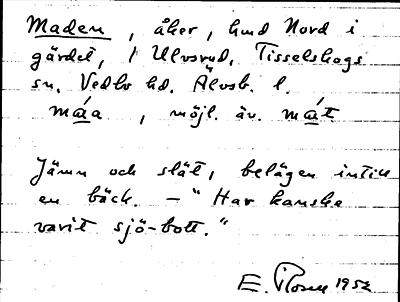 Maden, åker, hmd Nord i
gärdet, 1 Ulvsryd, Tisselskogs
sn, Vedbo hd. Älvsb. l.
máa, möjl. äv. mát
Jämn och slät, belägen intill
en bäck. – "Har kanske
varit sjö-bott."
E. Rosell 1952